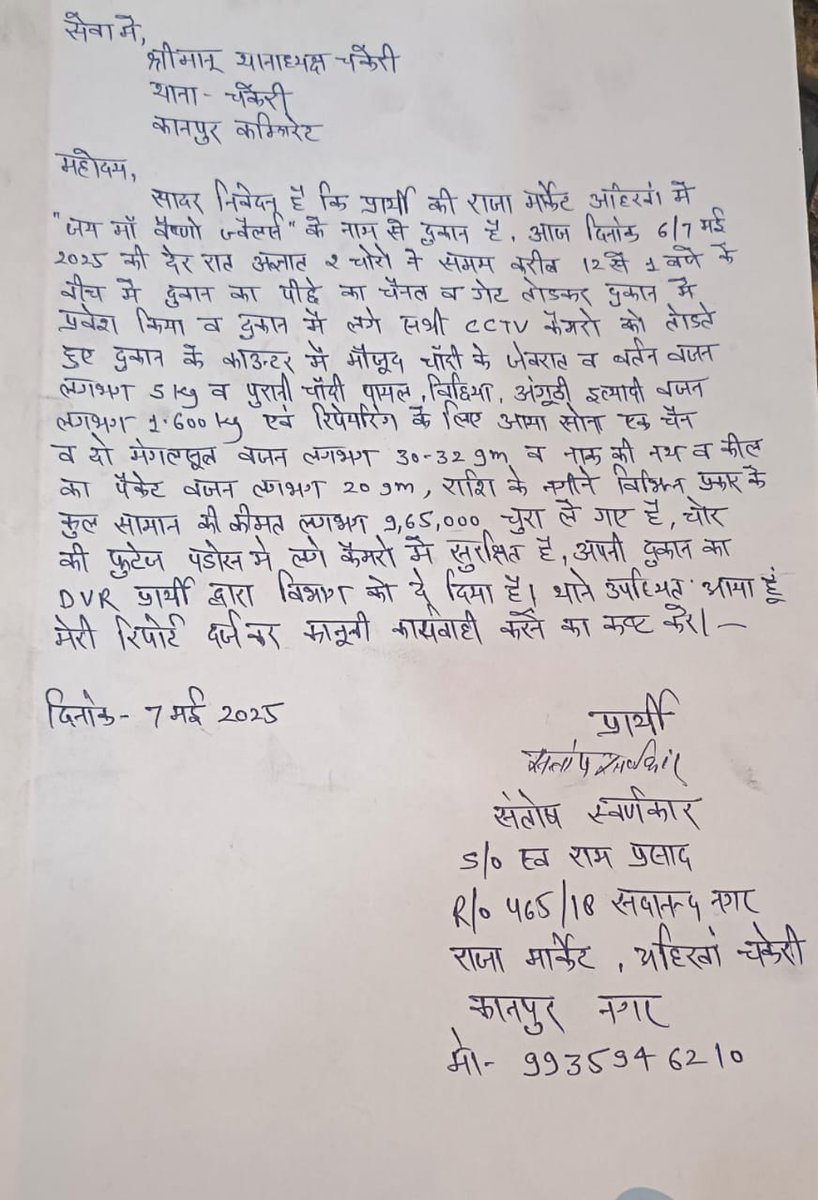 सेवा में,
श्रीमान् थानाध्यक्ष चकेरी
थाना - चकेरी
कानपुर कमिश्नरेट
महोदय,
सादर निवेदन है कि प्रार्थी की राजा मार्केट अहिरवां में
"जय माँ वैष्णो ज्वैलर्स" के नाम से दुकान है, आज दिनांक 6/7 मई
2025 की देर रात अज्ञात 2 चोरो ने समय करीब 12 से 1 बजे के
बीच में दुकान का पीछे का चैनल व गेट तोडकर दुकान में
प्रवेश किया व दुकान में लगे सभी CCTV कैमरो को तोडते
हुए दुकान के काउन्टर में मौजूद चाँदी के जेवरात व बर्तन वजन
लगभग 5 kg व पुरानी चाँदी पायल, बिछिया, अंगूठी इत्यादी वजन
लगभग 1.600 kg एवं रिपेयरिंग के लिए आया सोना एक चैन
व दो मंगलसूत्र वजन लगभग 30-32 gm व नाक की नथ व कील
का पैकेट वजन लगभग 20 gm, राशि के नगीने विभिन्न प्रकार के
कुल सामान की कीमत लगभग 9,65,000 चुरा ले गए है, चोर
की फुटेज पडोस मे लगे कैमरों में सुरक्षित है, अपनी दुकान का
DVR प्रार्थी द्वारा विभाग को दे दिया है। थाने उपस्थित आया हूं
मेरी रिपोर्ट दर्ज कर कानूनी कार्यवाही करने का कष्ट करे। —
दिनांक - 7 मई 2025
प्रार्थी
संतोष स्वर्णकार
S/o स्व राम प्रसाद
R/o 465/18 सदानन्द नगर
राजा मार्केट, अहिरवां चकेरी
कानपुर नगर
मो - 9935946210